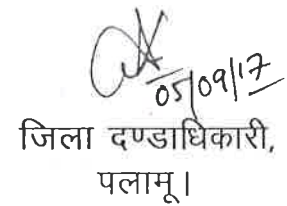 05/09/17
जिला दण्डाधिकारी,
पलामू।